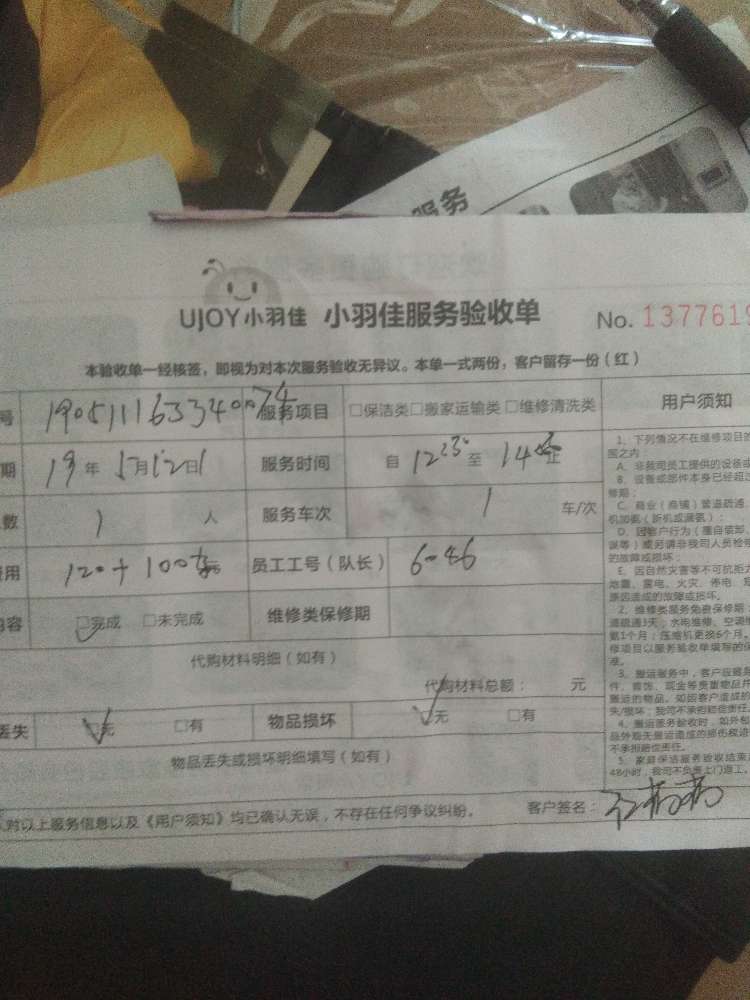 服务
UJOY小羽佳 小羽佳服务验收单 No. 1377619
本验收单一经核签，即视为对本次服务验收无异议。本单一式两份，客户留存一份（红）
号 190511163340074 服务项目 □保洁类□搬家运输类 □维修清洗类 用户须知
期 19年5月12日 服务时间 自 12:30 至 14 止
数 1 人 服务车次 1 车/次
费用 120+100 员工工号（队长） 6086
内容 □完成 □未完成 维修类保修期
代购材料明细（如有）
代购材料总额： 元
丢失 □无 □有 物品损坏 □无 □有
物品丢失或损坏明细填写（如有）
对以上服务信息以及《用户须知》均已确认无误，不存在任何争议纠纷。 客户签名：
1、下列情况不在维修项目
围之内：
A、非我司员工提供的设备或
B、设备或部件本身已经超
修期；
C、商业（商铺）管道疏通
机加氨（新机或漏氨）；
D、因客户行为（擅自装卸
误等）或另请非我司人员检修
的故障或损坏；
E、因自然灾害等不可抗拒力
地震、雷电、火灾、停电
原因造成的故障或损坏。
2、维修类服务免费保修期
道疏通3天；水电维修、空调
氨1个月；压缩机更换6个月
修项目以服务验收单填写的保
准。
3、搬运服务中，客户应
件、首饰、现金等贵重物品
搬运的物品。如因客户造成
失/损坏，我司不承担赔偿责任
4、搬运服务验收时，如外包
品外观无搬运造成的损伤痕迹
不承担赔偿责任。
5、家庭保洁服务验收结束
48小时，我司不负责上门返工。